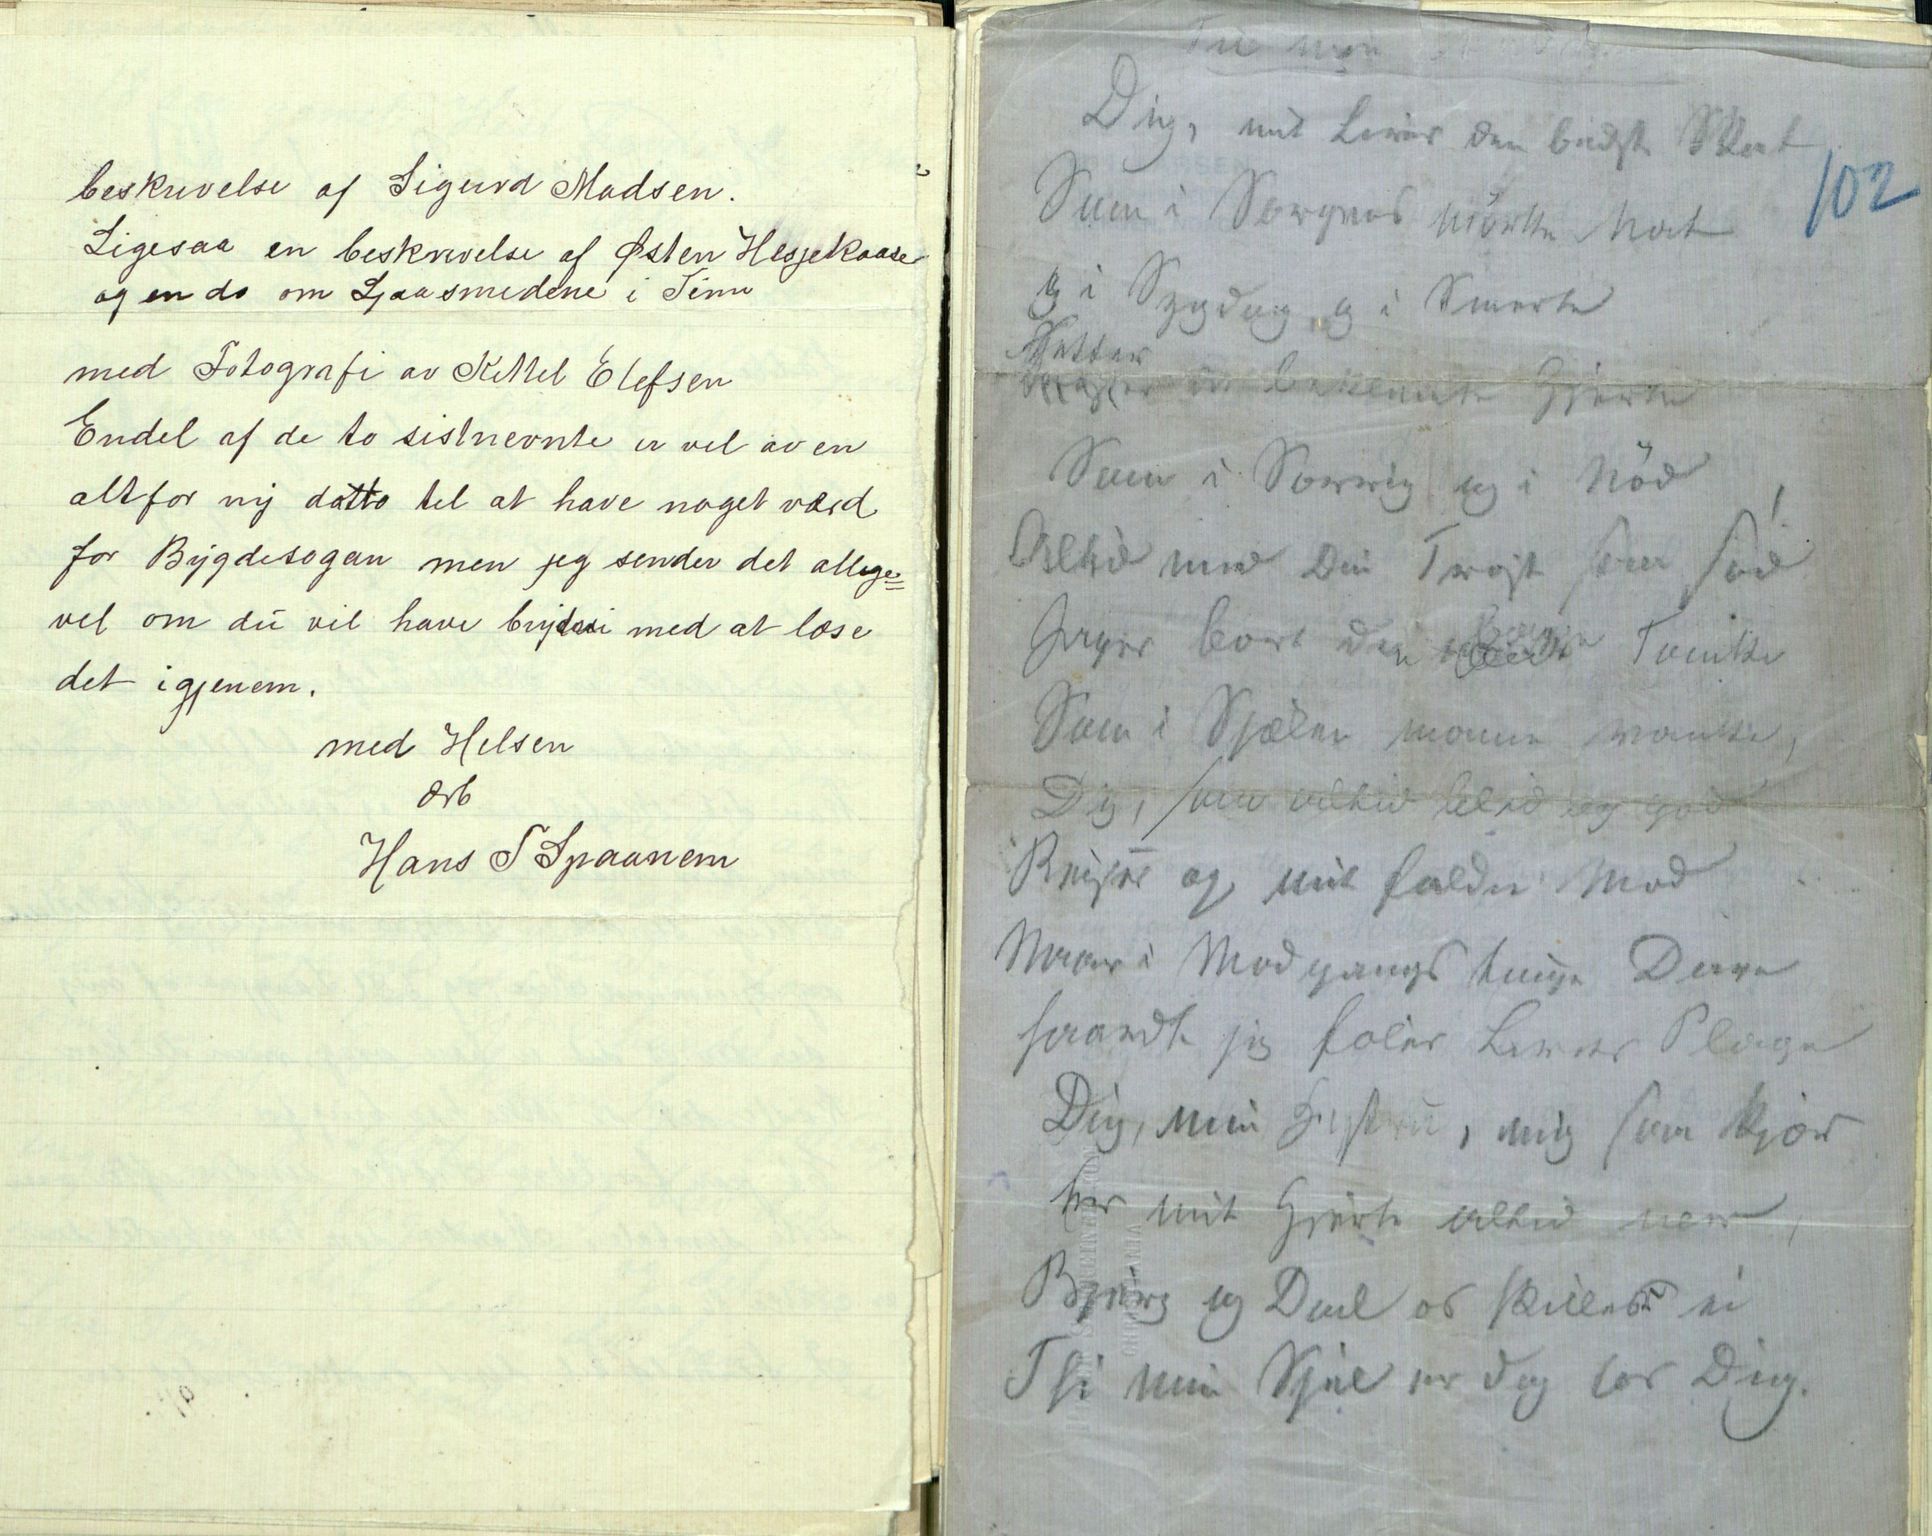 beskrivelse af Sigurd Madsen.
Ligesaa en beskrivelse af Østen Hesjekaase
og en do om Ljaasmedene i Tinn
med Fotografi av Kittel Elefsen
Endel af de to sistnevnte er vel av en
altfor nÿ datto tel at have noget værd
for Bÿgdesogan men jeg sender det allige=
vel om du vil have brÿderi med at læse
det igjenem.
med Helsen
ærb
Hans T Spaanem
Til min
102
Dig, mit Livs den bedste Skat
Som i Sorgens mörke Nat
og i Sygdom og i Smerte
Hatter
beklemte Hjerte
Som i Sorrig og i Nöd
Altid med Din Tröst saa söd
Jager bort den Tanke
Som i Sjælen monne vanke,
Dig, som altid blid og god
Reiser op mit faldne Mod
Naar i Modgangs tunge Dage
haardt jeg föler Livets Plage
Dig, min Hustru, mig saa kjær
har mit Hjerte altid nær,
Bjerg og Dal os skiller ei
Thi min Sjæl er dog hos Dig.